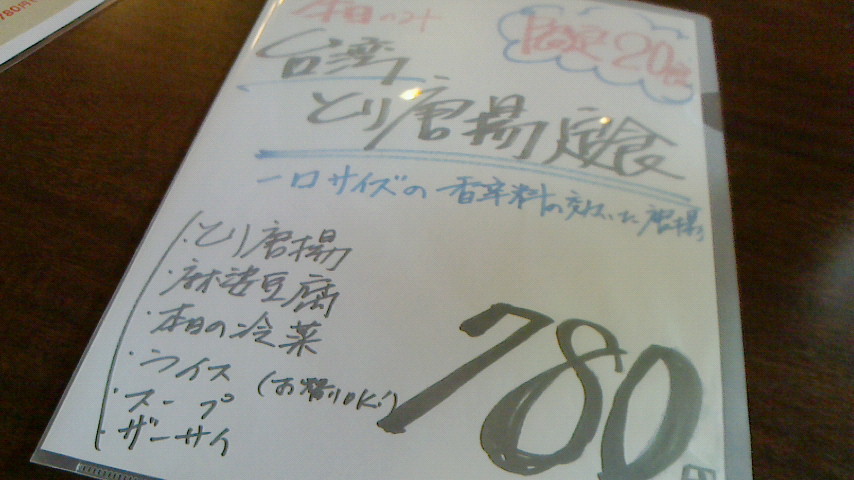 本日のみ
限定20個
台湾
とり唐揚定食
一口サイズの 香辛料の効いた唐揚
・とり唐揚
・麻婆豆腐
・本日の冷菜
・ライス
・スープ (お替りOK!)
・ザーサイ
780円